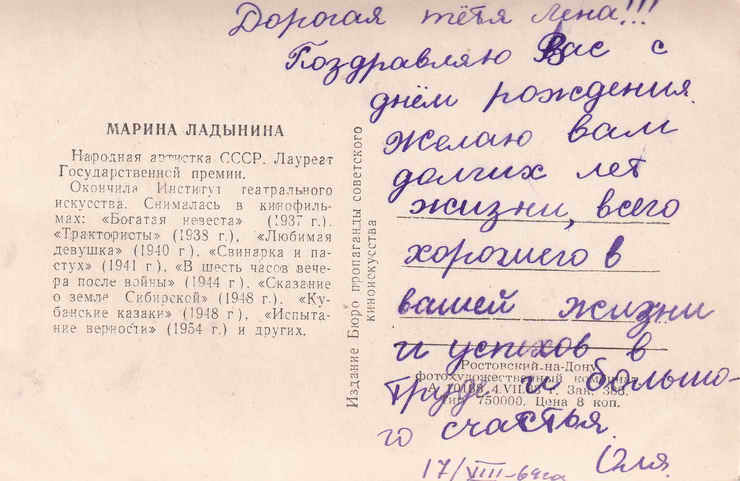 Дорогая тётя Лена!!!
Поздравляю Вас с
днём рождения.
Желаю вам
долгих лет
жизни, всего
хорошего в
вашей жизни
и успехов в
труде и большо-
го счастья.
17/VIII-64га Оля.
МАРИНА ЛАДЫНИНА
Народная артистка СССР. Лауреат
Государственной премии.
Окончила Институт театрального
искусства. Снималась в кинофиль-
мах: «Богатая невеста» (1937 г.).
«Трактористы» (1938 г.), «Любимая
девушка» (1940 г.), «Свинарка и па-
стух» (1941 г.), «В шесть часов вече-
ра после войны» (1944 г), «Сказание
о земле Сибирской» (1948 г.), «Ку-
банские казаки» (1948 г.), «Испыта-
ние верности» (1954 г.) и других.
Издание Бюро пропаганды советского
киноискусства
Ростовский-на-Дону
фотохудожественный комбинат
4.VII. Зак. 388.
Тир. 750000. Цена 8 коп.